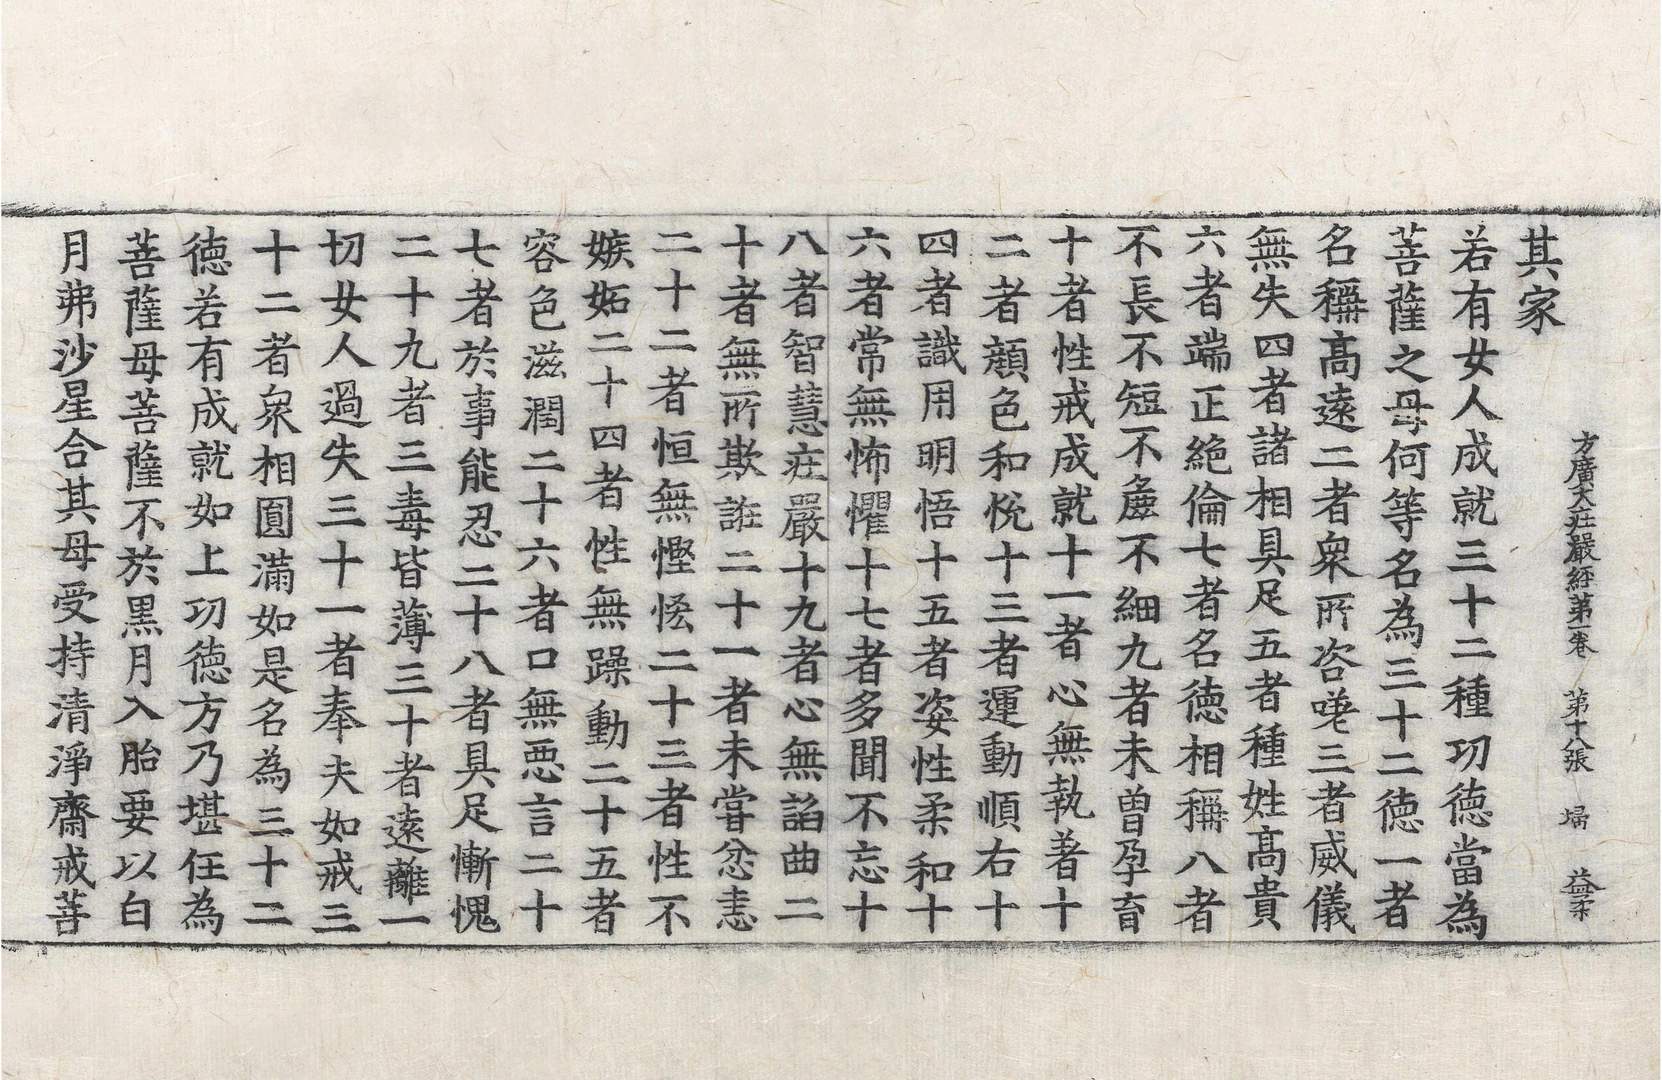 方廣大莊嚴經第一卷 第十八張 場 益柔
其家
若有女人成就三十二種功德當為
菩薩之母何等名為三十二德一者
名稱高遠二者衆所咨嗟三者威儀
無失四者諸相具足五者種姓高貴
六者端正絶倫七者名德相稱八者
不長不短不麁不細九者未曽孕育
十者性戒成就十一者心無執著十
二者顔色和悅十三者運動順右十
四者識用明悟十五者姿性柔和十
六者常無怖懼十七者多聞不忘十
八者智慧莊嚴十九者心無諂曲二
十者無所欺誑二十一者未甞忿恚
二十二者恒無慳悋二十三者性不
嫉妬二十四者性無躁動二十五者
容色滋潤二十六者口無惡言二十
七者於事能忍二十八者具足慚愧
二十九者三毒皆薄三十者遠離一
切女人過失三十一者奉夫如戒三
十二者衆相圓滿如是名為三十二
德若有成就如上功德方乃堪任為
菩薩母菩薩不於黑月入胎要以白
月弗沙星合其母受持清淨齋戒菩